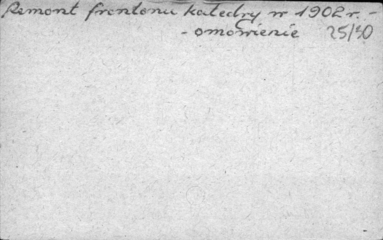 Remont frontonu katedry w 1902 r. -
- omówienie 25/50